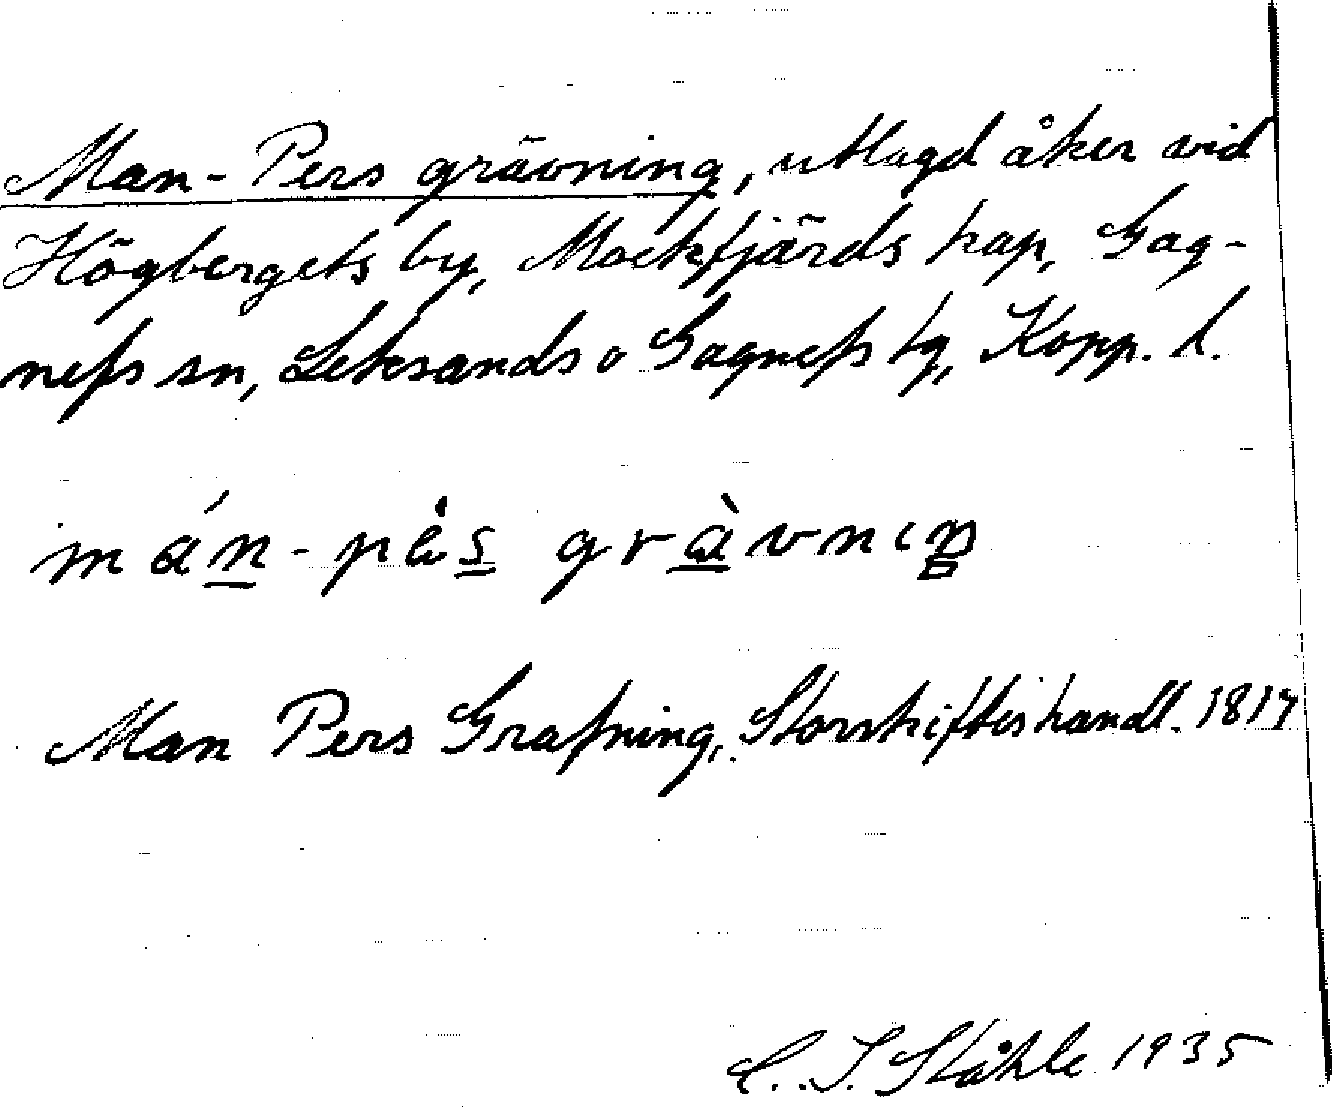 Man-Pers grävning, utlagd åker vid
Högbergets by, Mockfjärds kap, Gag-
nefs sn, Leksands o Gagnefs tg, Kopp. l.
mán-pês gràvnıŋ
Man Pers Grafning, Storskifteshandl. 1817
C. I. Ståhle 1935